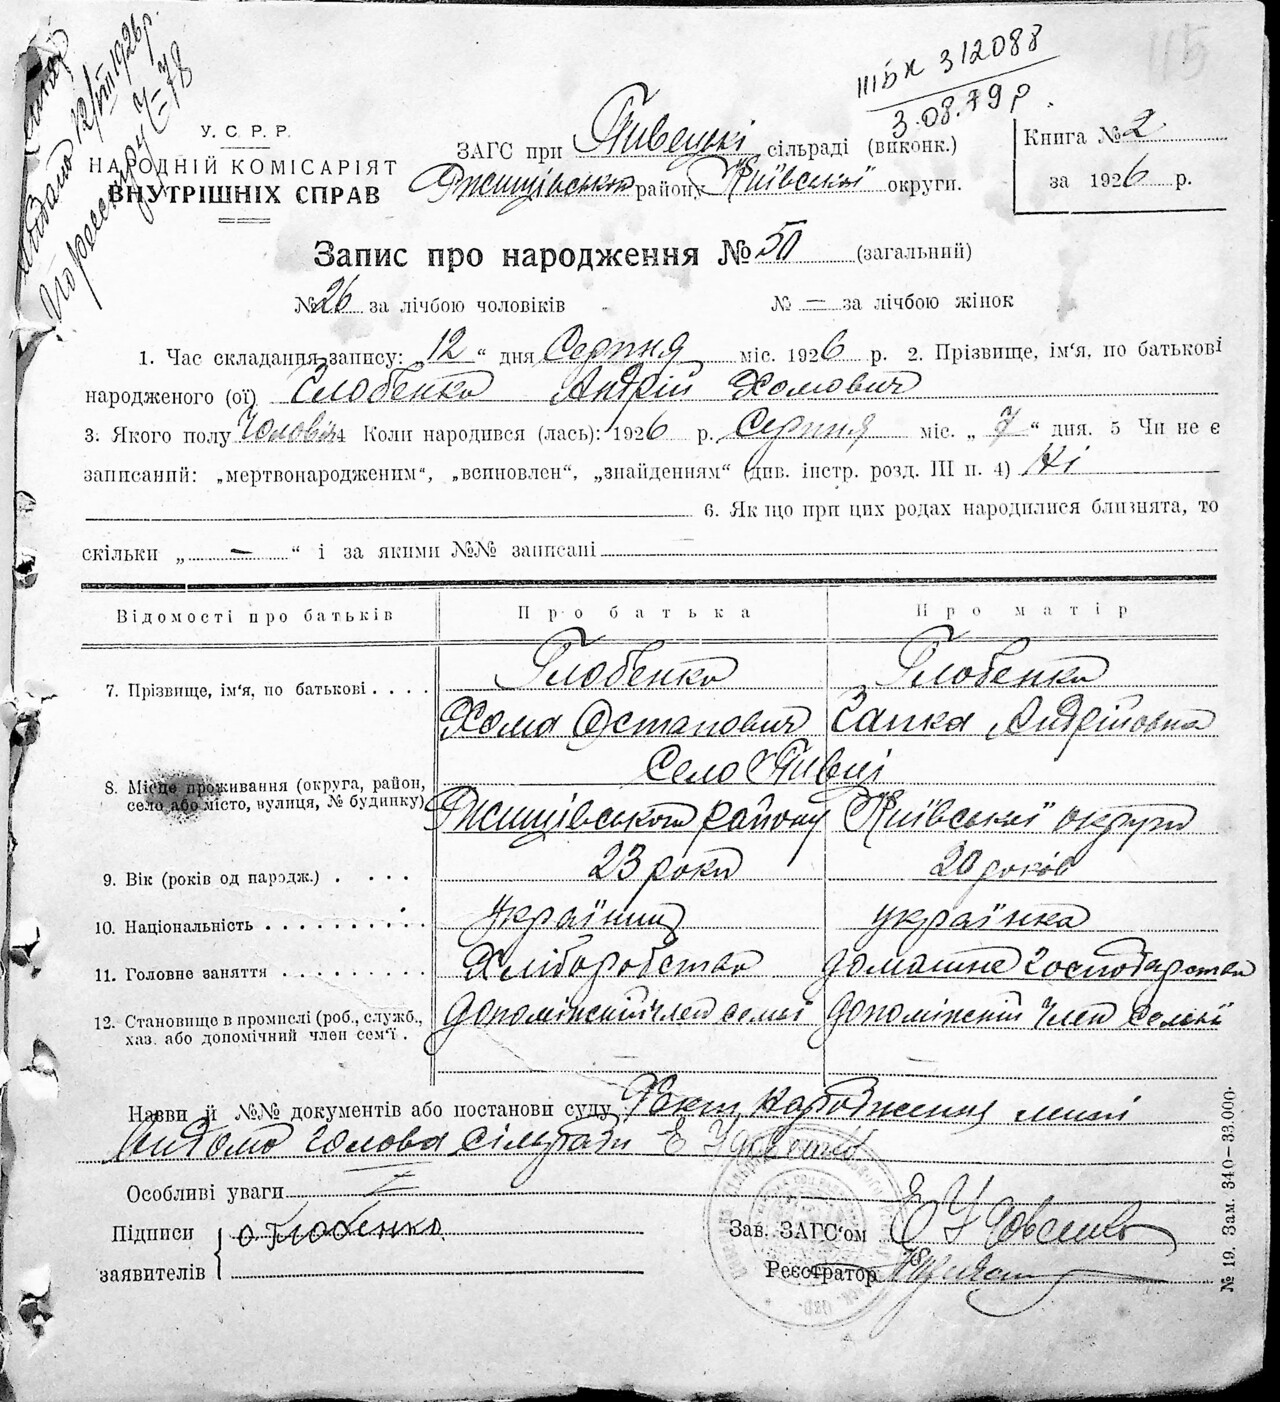 115
ІІІБК 312088
3.08.79 р.
Видано 12/VIII 1926 р.
по реєстру № 78
У. С. Р. Р.
НАРОДНІЙ КОМІСАРІЯТ
ВНУТРІШНІХ СПРАВ
ЗАГС при Пивецькі сільраді (виконк.)
Ржищівського району Київської округи.
Книга № 2
за 1926 р.
Запис про народження № 50 (загальний)
№ 26 за лічбою чоловіків № — за лічбою жінок
1. Час складання запису: „12“ дня Серпня міс. 1926 р. 2. Прізвище, ім'я, по батькові
народженого (ої) Глобенко Андрій Хомович
3. Якого полу Чоловіч 4 Коли народився (лась): 1926 р. Серпня міс. „7“ дня. 5 Чи не є
записаний: „мертвонародженим“, „всиновлен“, „знайденням“ (див. інстр. розд. ІІІ п. 4) Ні
6. Як що при цих родах народилися близнята, то
скільки „—“ і за якими №№ записані
Відомості про батьків Про батька Про матір
7. Прізвище, ім'я, по батькові . . . . Глобенко Глобенко
Хома Остапович Гапка Андріівна
8. Місце проживання (округа, район, село або місто, вулиця, № будинку) Село Пивці
Ржищівського району Київської округи
9. Вік (років од народж.) . . . . 23 роки 20 років
10. Національність . . . . . . . . . . українець українка
11. Головне заняття . . . . . . . . . Хліборобство домашне господарство
12. Становище в промислі (роб., служб., допоміжний член семьї допоміжній член семьї
хаз. або допомічний член сем'ї .
Назви й №№ документів або постанови суду Факт народження мені
відомо голова сільради Е Удовенко
Особливі уваги
Підписи О. Глобенко Зав. ЗАГС'ом
заявителів Реєстратор
№ 19. Зам. 340—33.000.